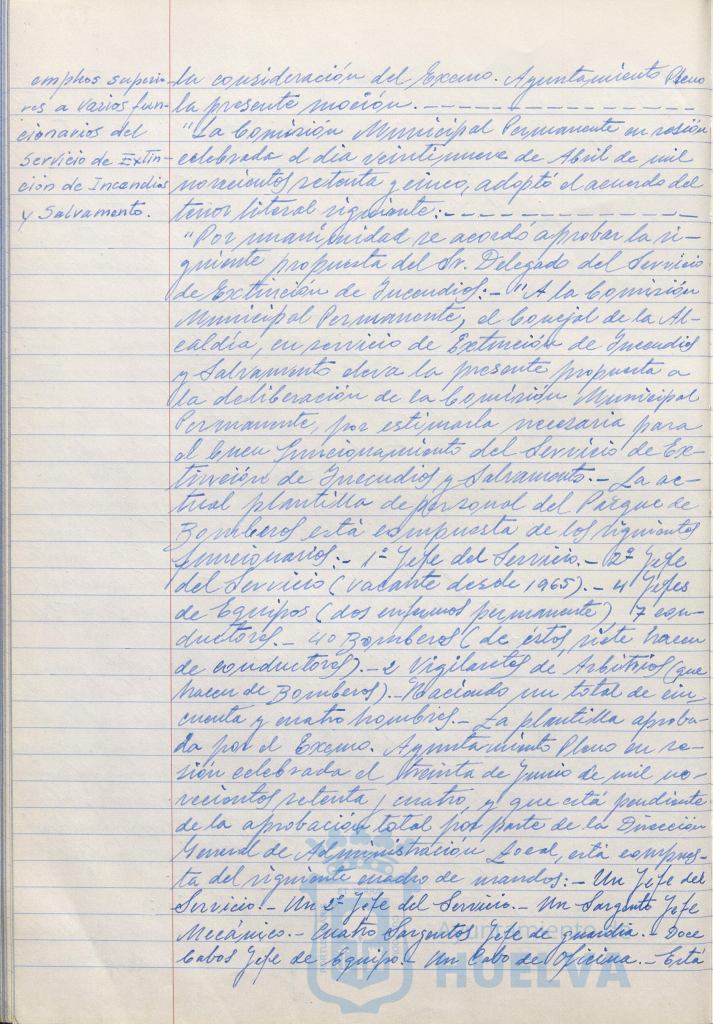 empleos superio-
res a varios fun-
cionarios del
Servicio de Extin-
ción de Incendios
y Salvamento.
la consideración del Excmo. Ayuntamiento Pleno
la presente moción. -
"La Comisión Municipal Permanente en sesión
celebrada el dia veintinueve de Abril de mil
novecientos setenta y cinco, adoptó el acuerdo del
tenor literal siguiente: -
"Por unanimidad se acordó aprobar la si-
guiente propuesta del Sr. Delegado del Servicio
de Extinción de Incendios: - "A la Comisión
Municipal Permanente, el Concejal de la Al-
caldía, en servicio de Extinción de Incendios
y Salvamento eleva la presente propuesta a
la deliberación de la Comisión Municipal
Permanente, por estimarla necesaria para
el buen funcionamiento del Servicio de Ex-
tinción de Incendios y Salvamento. - La ac-
tual plantilla de personal del Parque de
Bomberos está compuesta de los siguientes
funcionarios: - 1º Jefe del Servicio. - 2º Jefe
del Servicio (vacante desde 1965). - 4 Jefes
de Equipos (dos enfermos permanente) 7 con-
ductores. - 40 Bomberos (de estos, siete hacen
de conductores). - 2 Vigilantes de Arbitrios (que
hacen de Bomberos). - Haciendo un total de cin-
cuenta y cuatro hombres. - La plantilla aproba-
da por el Excmo. Ayuntamiento Pleno en se-
sión celebrada el treinta de Junio de mil no-
vecientos setenta y cuatro, y que está pendiente
de la aprobación total por parte de la Dirección
General de Administración Local, está compues-
ta del siguiente cuadro de mandos: - Un Jefe del
Servicio. - Un 2º Jefe del Servicio. - Un Sargento Jefe
Mecánico. - Cuatro Sargentos Jefe de guardia. - Doce
Cabos Jefe de Equipo. - Un Cabo de Oficina. - Está
Ayuntamiento
HUELVA